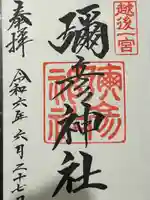 越後一宮
彌彦神社
奉拝
令和六年六月二十七日